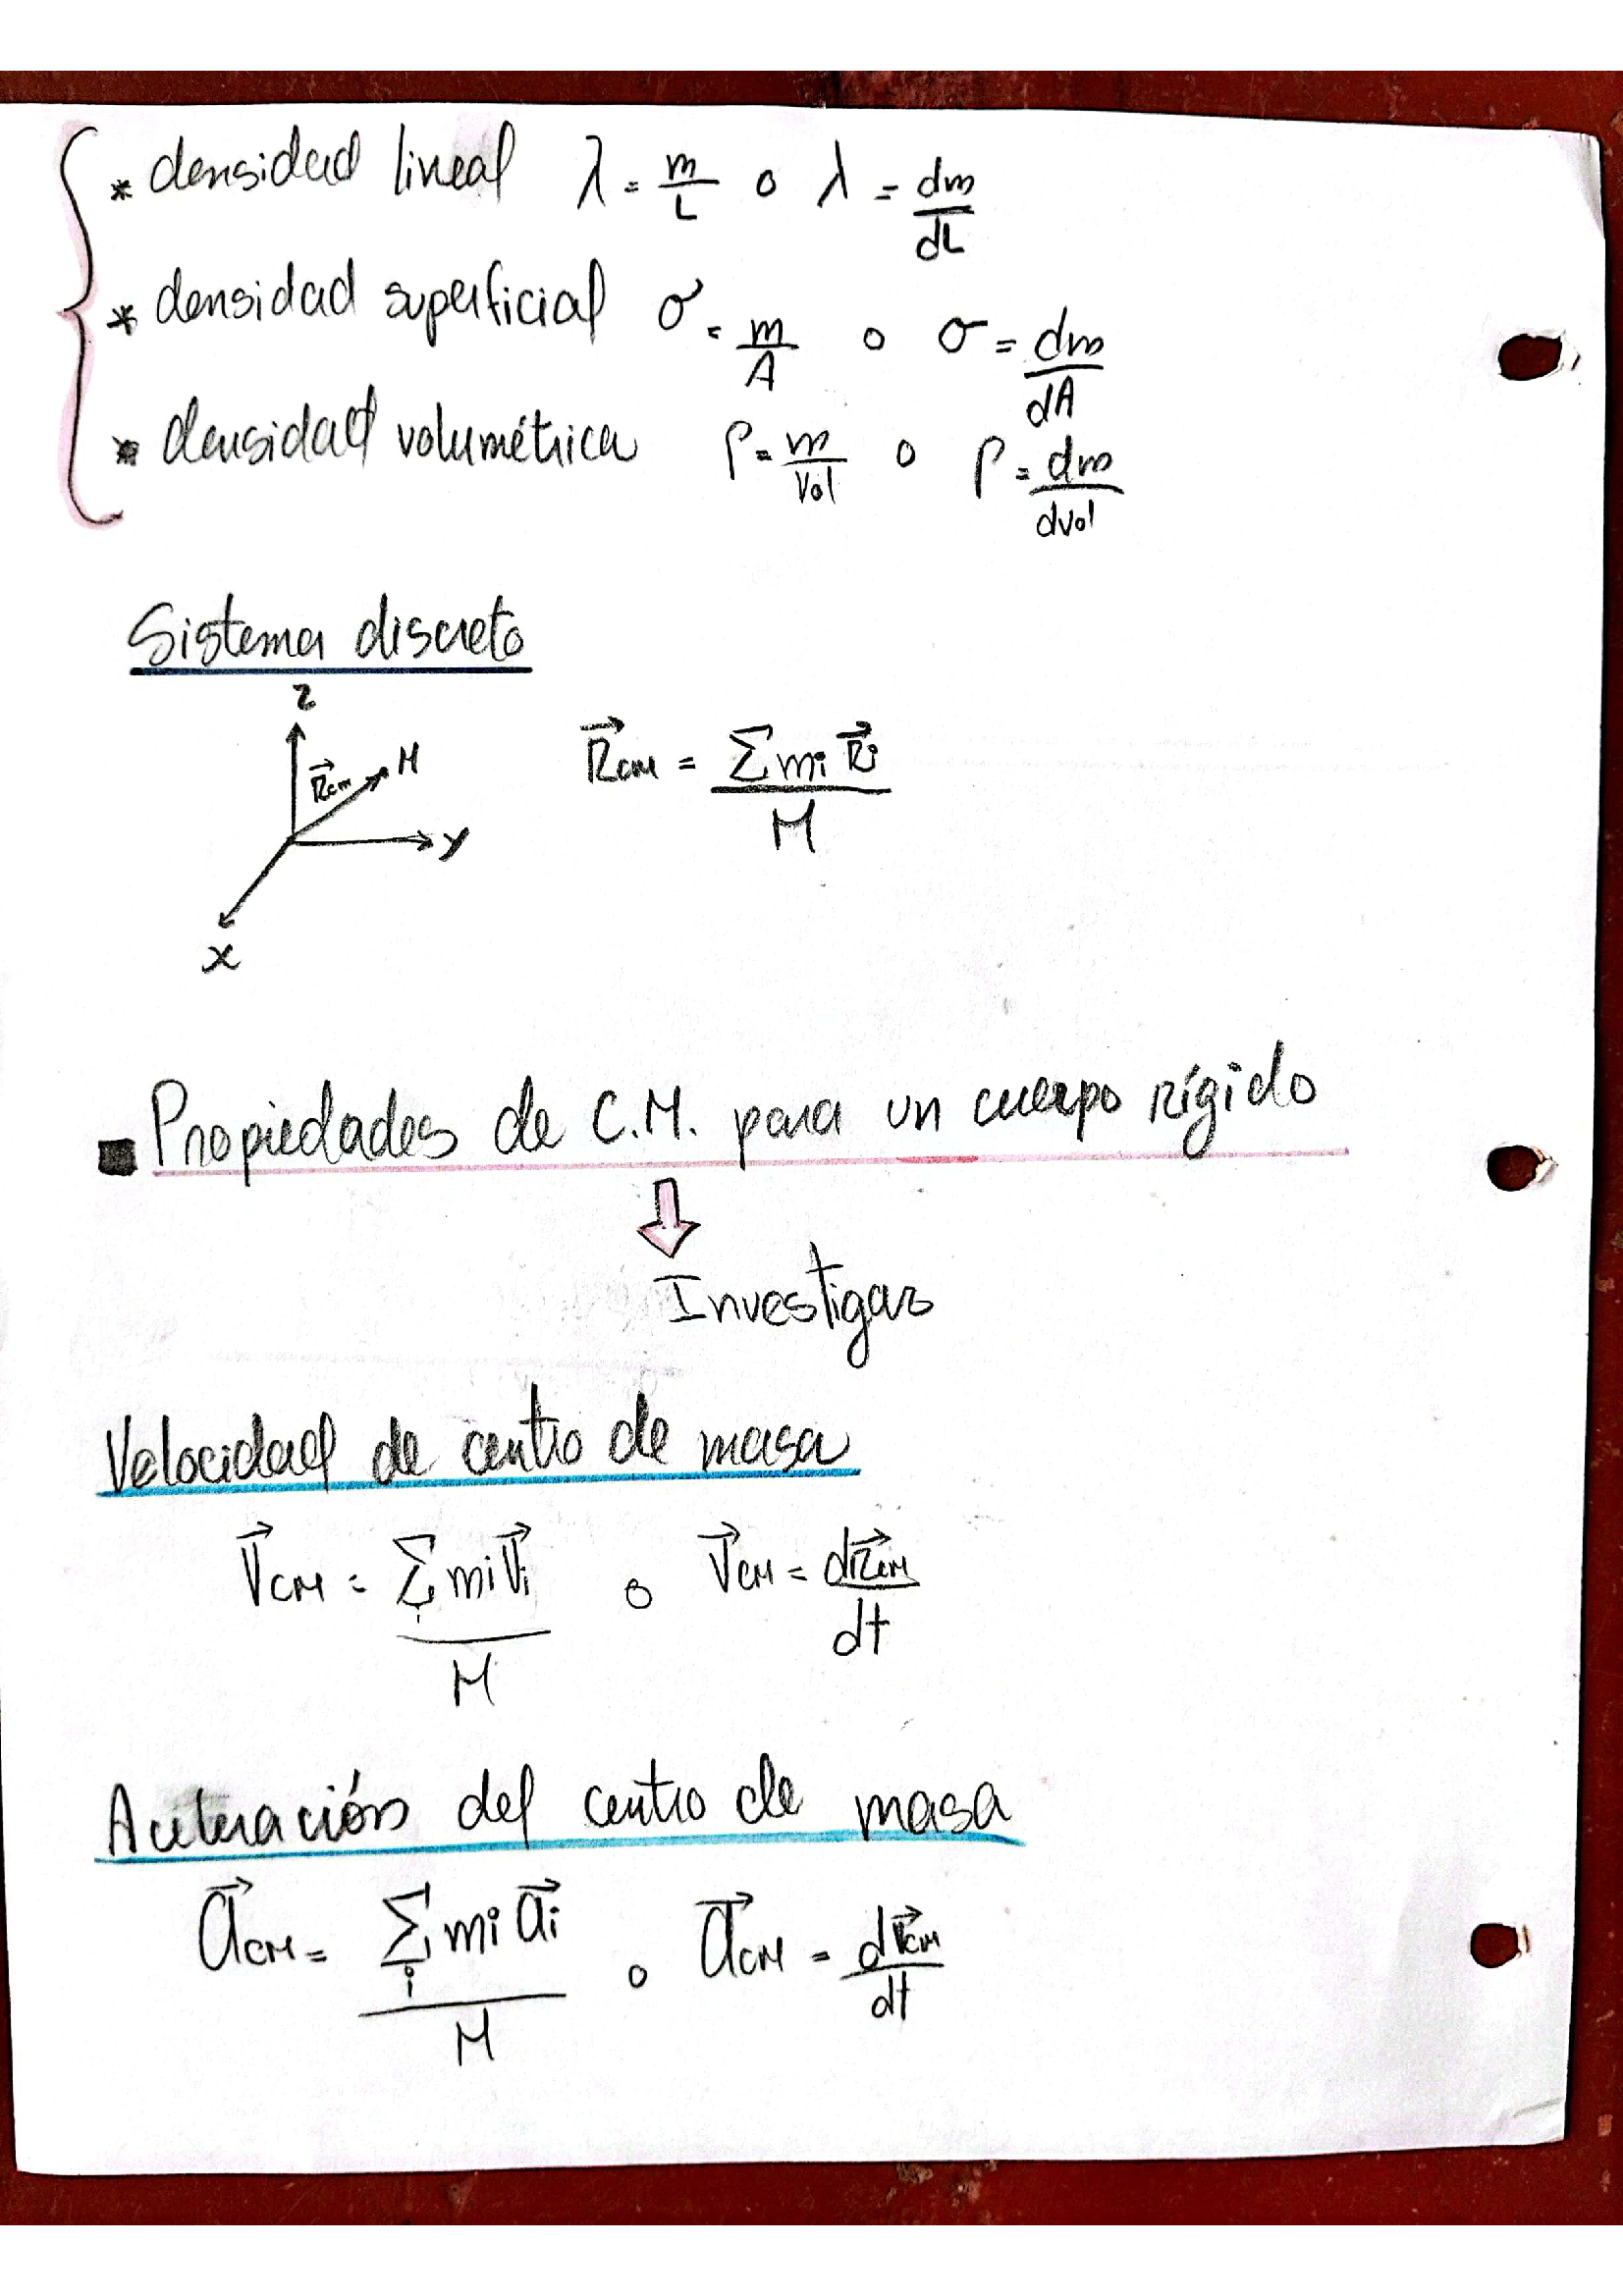 * densidad lineal λ = m/L o λ = dm/dL
* densidad superficial σ = m/A o σ = dm/dA
* densidad volumétrica ρ = m/Vol o ρ = dm/dvol
Sistema discreto
z
R⃗cm M
y
x
R⃗cm = Σ mi R⃗i / M
Propiedades de C.M. para un cuerpo rígido
Investigar
Velocidad de centro de masa
V⃗CM = Σi mi V⃗i / M o V⃗CM = dR⃗CM/dt
Aceleración del centro de masa
a⃗CM = Σi mi a⃗i / M o a⃗CM = dV⃗CM/dt